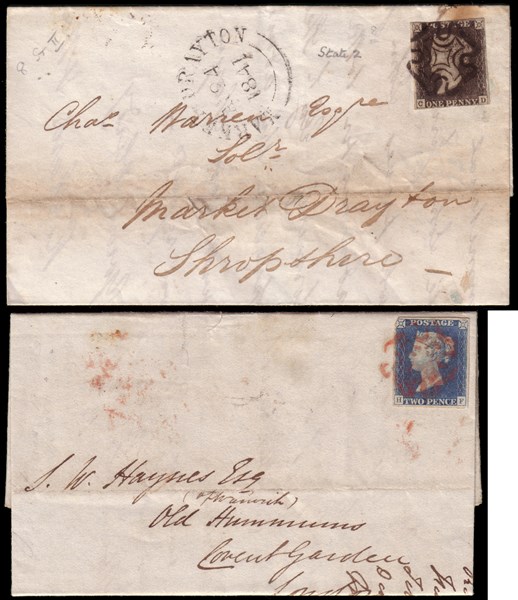 State 2
POSTAGE
ONE PENNY
C D
MARKET DRAYTON
1841
Chas Warren Esqre
Solr
Market Drayton
Shropshire
POSTAGE
TWO PENCE
H F
S. W. Haynes Esq
(of Warwick)
Old Hummums
Covent Garden